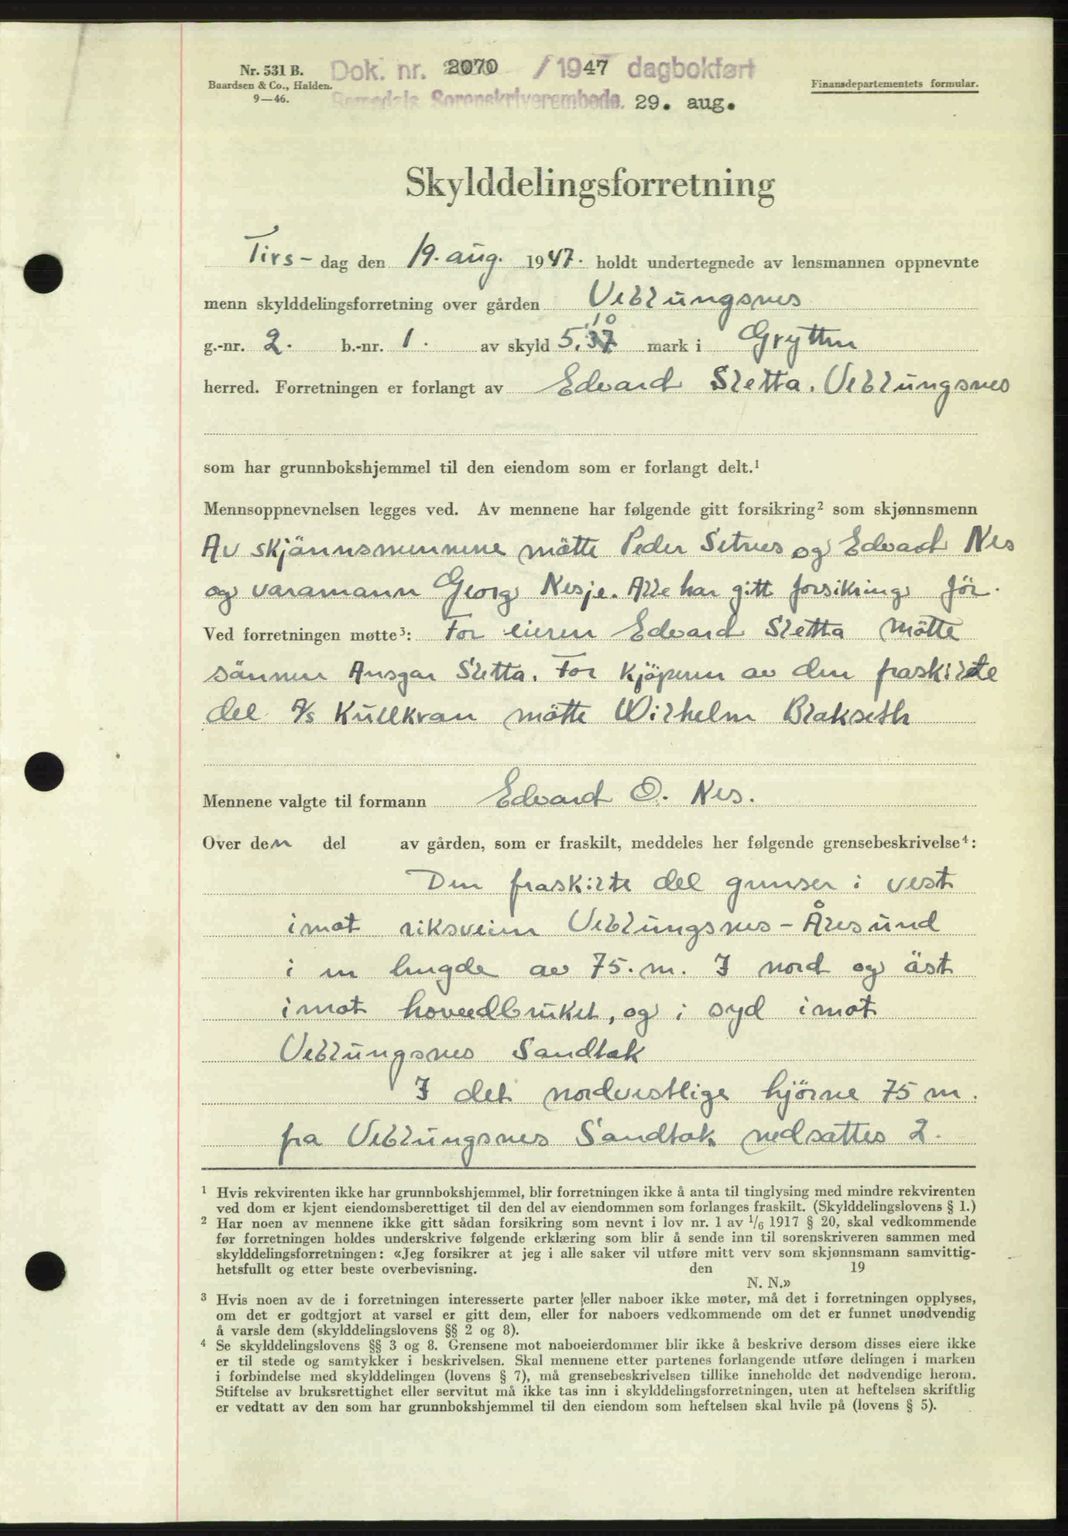 Nr. 531 B.
Baardsen & Co., Halden.
9—46.
Dok. nr. 2070 / 1947 dagbokført
Romsdals Sorenskriverembede. 29. aug.
Finansdepartementets formular.
Skylddelingsforretning
Tirs- dag den 19. aug. 1947. holdt undertegnede av lensmannen oppnevnte
menn skylddelingsforretning over gården Veblungsnes
g.-nr. 2. b.-nr. 1. av skyld 5, mark i Grytten
herred. Forretningen er forlangt av Edvard Sletta. Veblungsnes
som har grunnbokshjemmel til den eiendom som er forlangt delt.¹
Mennsoppnevnelsen legges ved. Av mennene har følgende gitt forsikring² som skjønnsmenn
Av skjönnsmennene mötte Peder Setnes og Edvard Nes
og varamann Georg Nesje. Alle har gitt forsikring för.
Ved forretningen møtte³: For eieren Edvard Sletta mötte
sönnen Ansgar Sletta. For kjöperen av den fraskilte
del A/S Kullkran mötte Wilhelm Blakseth
Mennene valgte til formann Edvard O. Nes.
Over den del av gården, som er fraskilt, meddeles her følgende grensebeskrivelse⁴:
Den fraskilte del grenser i vest
imot riksveien Veblungsnes - Ålesund
i en lengde av 75. m. I nord og öst
imot hovedbruket, og i syd imot
Veblungsnes Sandtak
I det nordvestlige hjörne 75 m.
fra Veblungsnes Sandtak nedsattes 2.
¹ Hvis rekvirenten ikke har grunnbokshjemmel, blir forretningen ikke å anta til tinglysing med mindre rekvirenten
ved dom er kjent eiendomsberettiget til den del av eiendommen som forlanges fraskilt. (Skylddelingslovens § 1.)
² Har noen av mennene ikke gitt sådan forsikring som nevnt i lov nr. 1 av 1/6 1917 § 20, skal vedkommende
før forretningen holdes underskrive følgende erklæring som blir å sende inn til sorenskriveren sammen med
skylddelingsforretningen: «Jeg forsikrer at jeg i alle saker vil utføre mitt verv som skjønnsmann samvittig-
hetsfullt og etter beste overbevisning. den 19
N. N.»
³ Hvis noen av de i forretningen interesserte parter eller naboer ikke møter, må det i forretningen opplyses,
om det er godtgjort at varsel er gitt dem, eller for naboers vedkommende om det er funnet unødvendig
å varsle dem (skylddelingslovens §§ 2 og 8).
⁴ Se skylddelingslovens §§ 3 og 8. Grensene mot naboeierdommer blir ikke å beskrive dersom disses eiere ikke
er til stede og samtykker i beskrivelsen. Skal mennene etter partenes forlangende utføre delingen i marken
i forbindelse med skylddelingen (lovens § 7), må grensebeskrivelsen tillike inneholde det nødvendige herom.
Stiftelse av bruksrettighet eller servitut må ikke tas inn i skylddelingsforretningen, uten at heftelsen skriftlig
er vedtatt av den som har grunnbokshjemmel til den eiendom som heftelsen skal hvile på (lovens § 5).